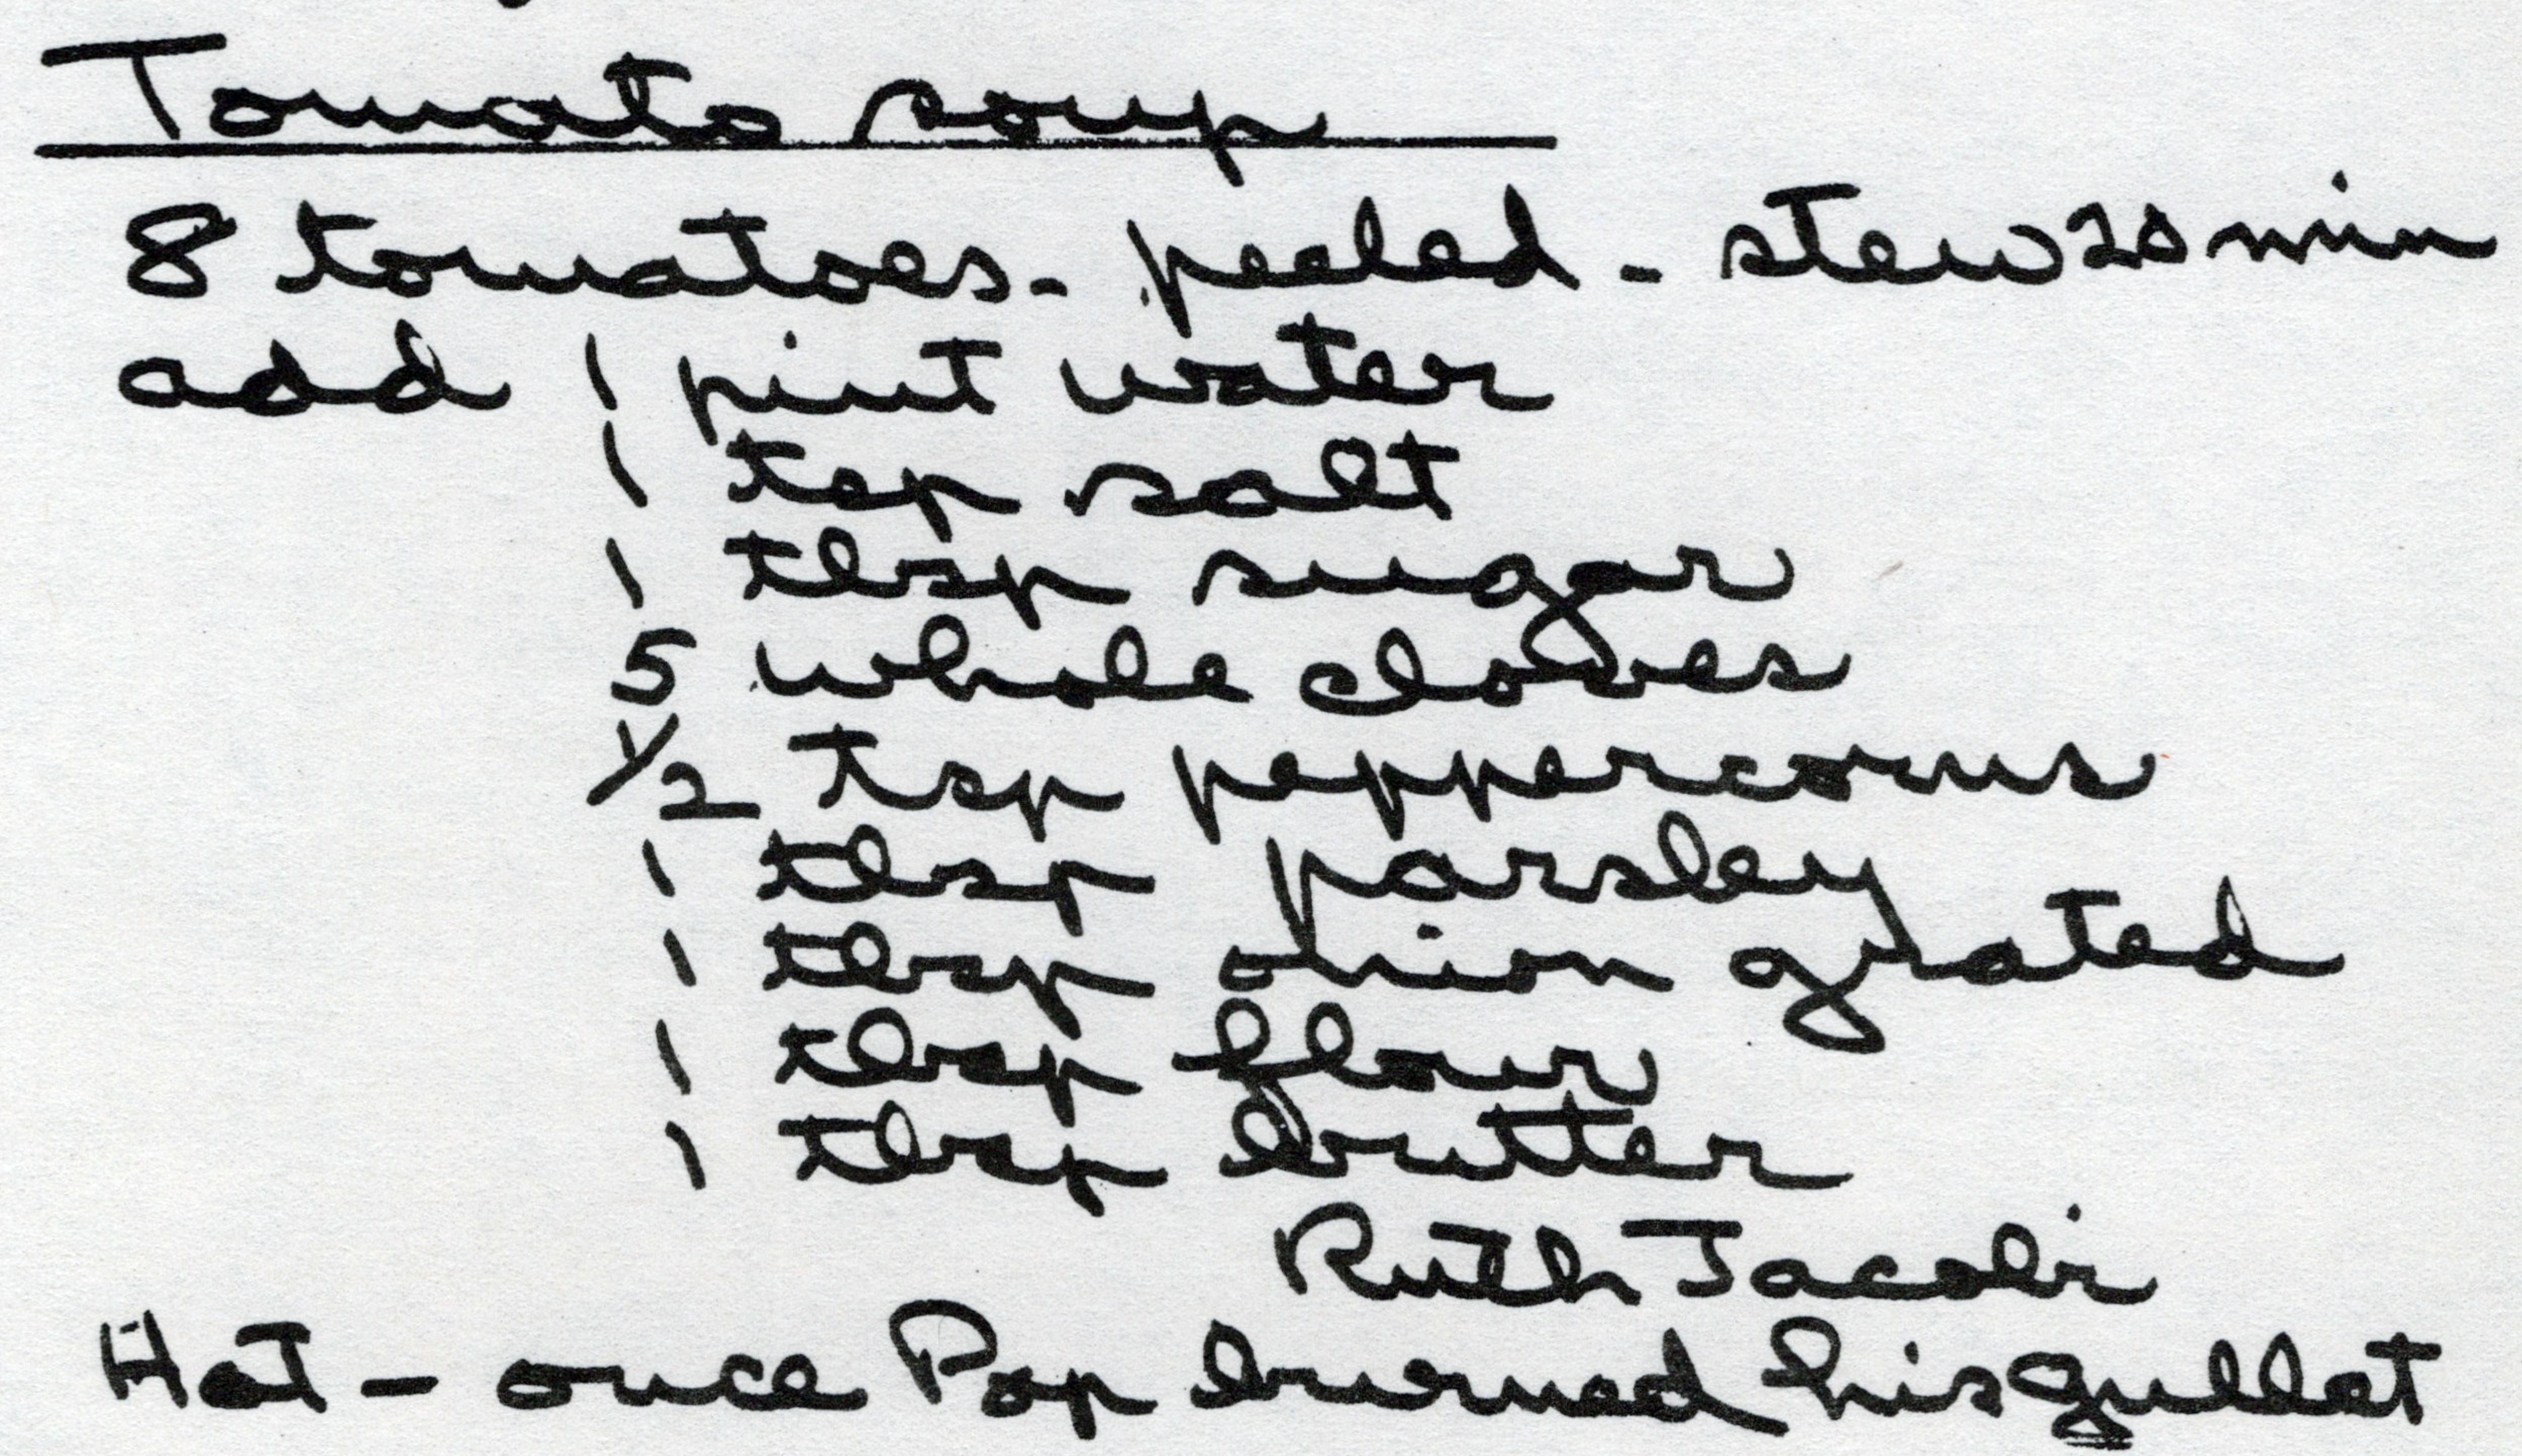 Tomato soup
8 tomatoes - peeled - stew 20 min
add 1 pint water
1 tsp salt
1 tbsp sugar
5 whole cloves
1/2 tsp peppercorns
1 tbsp parsley
1 tbsp onion grated
1 tbsp flour
1 tbsp butter
Ruth Jacobi
Hot - once Pop burned his gullet